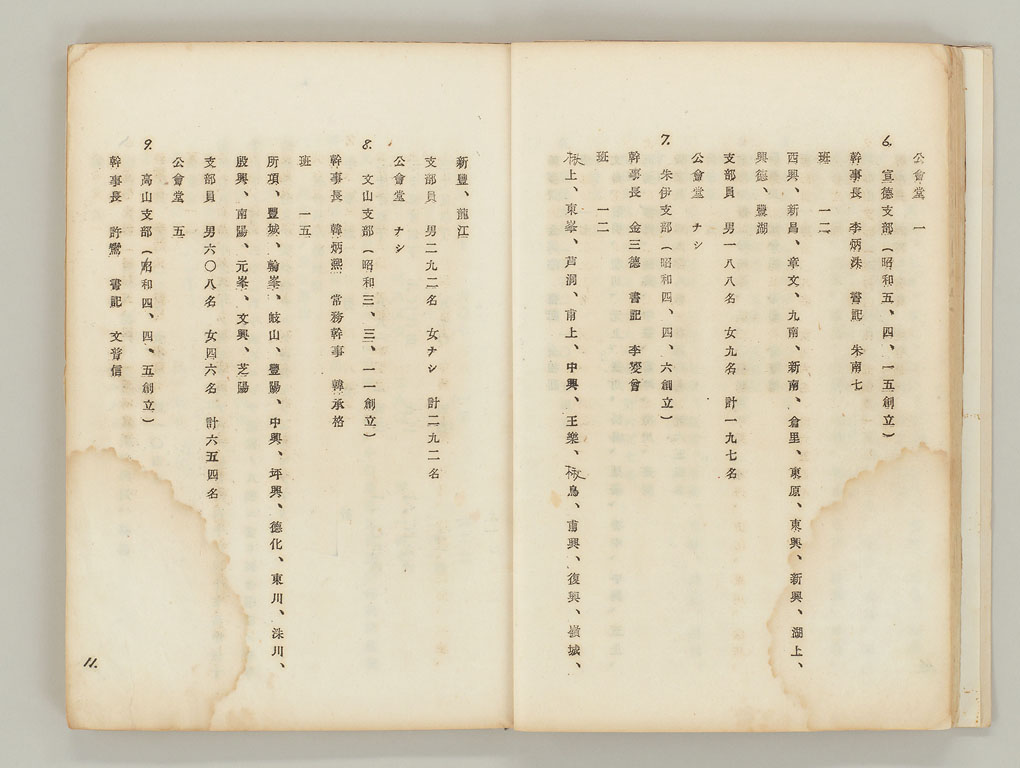 公會堂 一
6. 宣德支部(昭和五、四、一五創立)
幹事長 李炳洙 書記 朱南七
班 一二
西興、新昌、章文、九南、新南、倉里、東原、東興、新興、湖上、
興德、豐湖
支部員 男一八八名 女九名 計一九七名
公會堂 ナシ
7. 朱伊支部(昭和四、四、六創立)
幹事長 金三德 書記 李燮曾
班 一二
上、東峯、芦洞、甫上、中興、王樂、島、甫興、復興、嶺城、
新豐、龍江
支部員 男二九二名 女ナシ 計二九二名
公會堂 ナシ
8. 文山支部(昭和三、三、一一創立)
幹事長 韓炳熙 常務幹事 韓承格
班 一五
所項、豐城、輪峯、岐山、豐陽、中興、坪興、德化、東川、洙川、
殷興、南陽、元峯、文興、芝陽
支部員 男六〇八名 女四六名 計六五四名
公會堂 五
9. 高山支部(昭和四、四、五創立)
幹事長 許鸞 書記 文晋信
11.